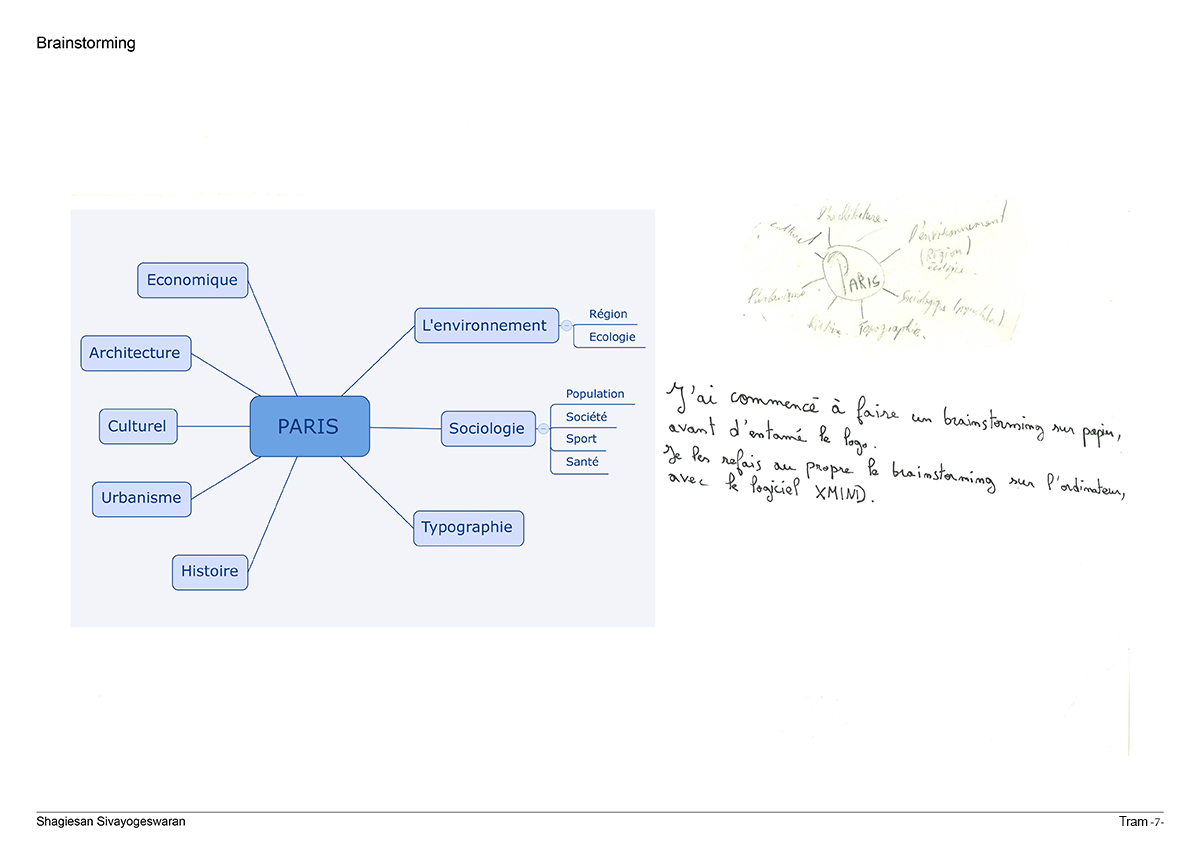 Brainstorming
Economique
Architecture
Culturel
Urbanisme
Histoire
PARIS
L'environnement
Région
Ecologie
Sociologie
Population
Société
Sport
Santé
Typographie
l'architecture
culturel
L'environnement
(Région)
écologie
PARIS
l'urbanisme
Sociologique
histoire
Topographie
J'ai commencé à faire un brainstorming sur papier,
avant d'entamé le logo.
Je les refais au propre le brainstorming sur l'ordinateur,
avec le logiciel XMIND.
Shagiesan Sivayogeswaran
Tram -7-